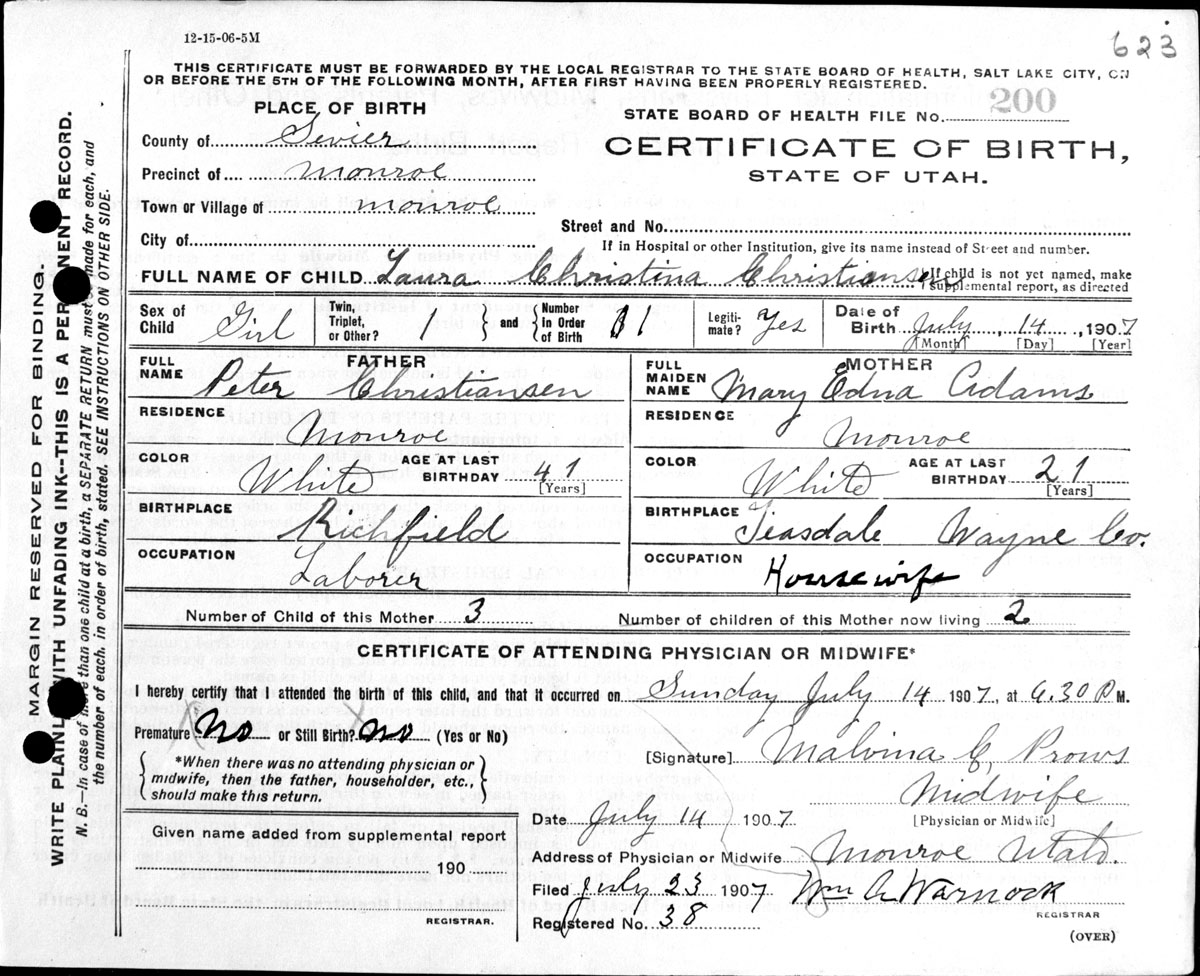 12-15-06-5M
623
THIS CERTIFICATE MUST BE FORWARDED BY THE LOCAL REGISTRAR TO THE STATE BOARD OF HEALTH, SALT LAKE CITY, ON
OR BEFORE THE 5TH OF THE FOLLOWING MONTH, AFTER FIRST HAVING BEEN PROPERLY REGISTERED.
PLACE OF BIRTH
STATE BOARD OF HEALTH FILE No. 200
County of Sevier
CERTIFICATE OF BIRTH,
Precinct of Monroe
STATE OF UTAH.
Town or Village of Monroe
Street and No.
City of
If in Hospital or other Institution, give its name instead of Street and number.
FULL NAME OF CHILD Laura Christina Christiansen
If child is not yet named, make
supplemental report, as directed
Sex of Child Girl
Twin, Triplet, or Other? 1
and
Number In Order of Birth 1
Legiti-mate? Yes
Date of Birth July, 14, 1907
[Month] [Day] [Year]
FATHER
FULL NAME Peter Christiansen
RESIDENCE Monroe
COLOR White AGE AT LAST BIRTHDAY 41
[Years]
BIRTHPLACE Richfield
OCCUPATION Laborer
MOTHER
FULL MAIDEN NAME Mary Edna Adams
RESIDENCE Monroe
COLOR White AGE AT LAST BIRTHDAY 21
[Years]
BIRTHPLACE Teasdale Wayne Co.
OCCUPATION Housewife
Number of Child of this Mother 3 Number of children of this Mother now living 2
CERTIFICATE OF ATTENDING PHYSICIAN OR MIDWIFE*
I hereby certify that I attended the birth of this child, and that it occurred on Sunday July 14 1907, at 6.30 P M.
Premature No or Still Birth? No (Yes or No)
*When there was no attending physician or
midwife, then the father, householder, etc.,
should make this return.
[Signature] Malvina C, Prows
Midwife
[Physician or Midwife]
Date July 14 1907
Given name added from supplemental report
190
REGISTRAR.
Address of Physician or Midwife Monroe Utah.
Filed July 23 1907 Wm A Warnock
REGISTRAR
Registered No. 38
(OVER)
MARGIN RESERVED FOR BINDING.
WRITE PLAINLY WITH UNFADING INK--THIS IS A PERMANENT RECORD.
N. B.—In case of more than one child at a birth, a SEPARATE RETURN must be made for each, and
the number of each. in order of birth, stated. SEE INSTRUCTIONS ON OTHER SIDE.